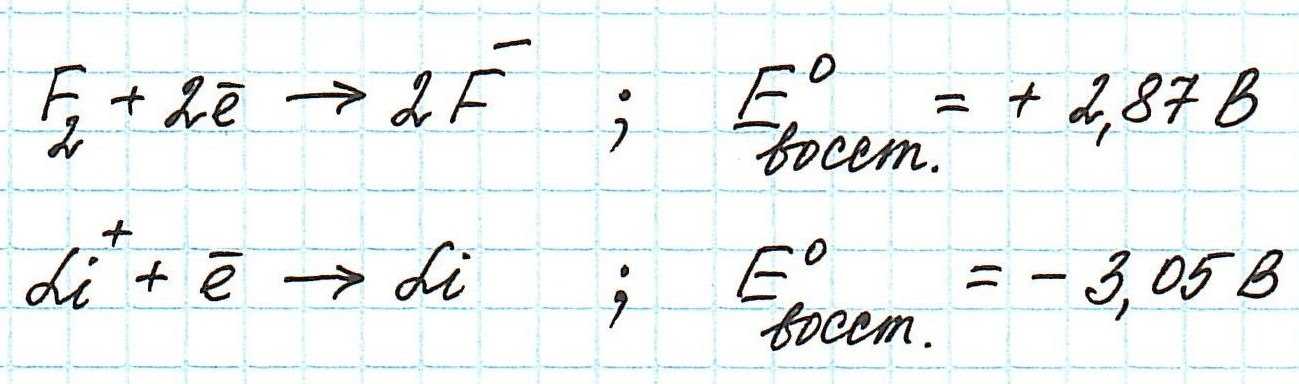 F₂ + 2ē → 2F⁻ ; E⁰восст. = + 2,87 В
Li⁺ + ē → Li ; E⁰восст. = - 3,05 В